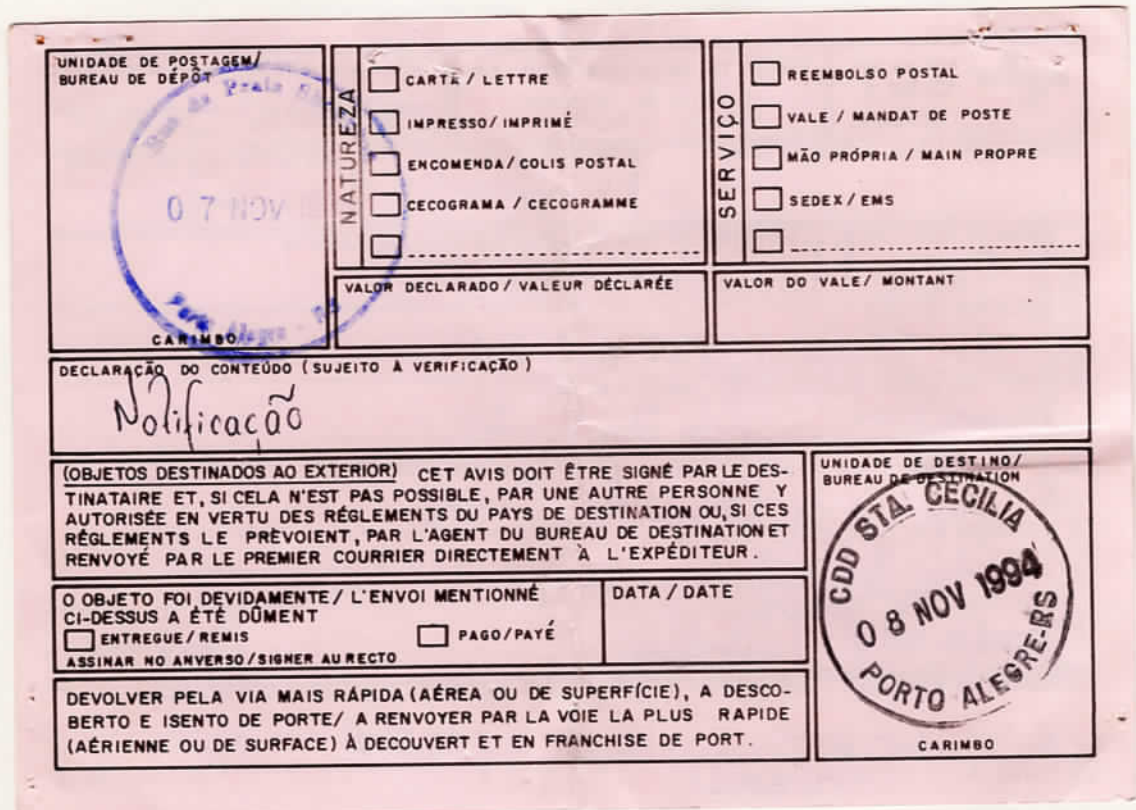 UNIDADE DE POSTAGEM/
BUREAU DE DÉPÔT
07 NOV
Porto Alegre - RS
CARIMBO
NATUREZA
CARTA / LETTRE
IMPRESSO/IMPRIMÉ
ENCOMENDA/COLIS POSTAL
CECOGRAMA / CECOGRAMME
SERVIÇO
REEMBOLSO POSTAL
VALE / MANDAT DE POSTE
MÃO PRÓPRIA / MAIN PROPRE
SEDEX/EMS
VALOR DECLARADO / VALEUR DÉCLARÉE
VALOR DO VALE/ MONTANT
DECLARAÇÃO DO CONTEÚDO (SUJEITO À VERIFICAÇÃO)
Notificação
(OBJETOS DESTINADOS AO EXTERIOR) CET AVIS DOIT ÊTRE SIGNÉ PAR LE DES-
TINATAIRE ET, SI CELA N'EST PAS POSSIBLE, PAR UNE AUTRE PERSONNE Y
AUTORISÉE EN VERTU DES RÉGLEMENTS DU PAYS DE DESTINATION OU, SI CES
RÉGLEMENTS LE PRÈVOIENT, PAR L'AGENT DU BUREAU DE DESTINATION ET
RENVOYÉ PAR LE PREMIER COURRIER DIRECTEMENT À L'EXPÉDITEUR.
O OBJETO FOI DEVIDAMENTE/ L'ENVOI MENTIONNÉ
CI-DESSUS A ÉTÉ DÛMENT
ENTREGUE/REMIS
PAGO/PAYÉ
ASSINAR NO ANVERSO/SIGNER AU RECTO
DATA / DATE
DEVOLVER PELA VIA MAIS RÁPIDA (AÉREA OU DE SUPERFÍCIE), A DESCO-
BERTO E ISENTO DE PORTE/ A RENVOYER PAR LA VOIE LA PLUS RAPIDE
(AÉRIENNE OU DE SURFACE) À DECOUVERT ET EN FRANCHISE DE PORT.
UNIDADE DE DESTINO/
BUREAU DE DESTINATION
CDD STA. CECILIA
08 NOV 1994
PORTO ALEGRE-RS
CARIMBO